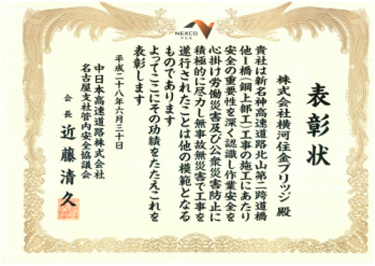 NEXCO
中日本
表彰状
株式会社横河住金ブリッジ 殿
貴社は新名神高速道路北山第二跨道橋
他1橋(鋼上部工)工事の施工にあたり
安全の重要性を深く認識し作業安全を
心掛け労働災害及び公衆災害防止に
積極的に尽力し無事故無災害で工事を
遂行されたことは他の模範となる
ものであります
よってここにその功績をたたえこれを
表彰します
平成二十八年六月三十日
中日本高速道路株式会社
名古屋支社管内安全協議会
会長 近藤清久